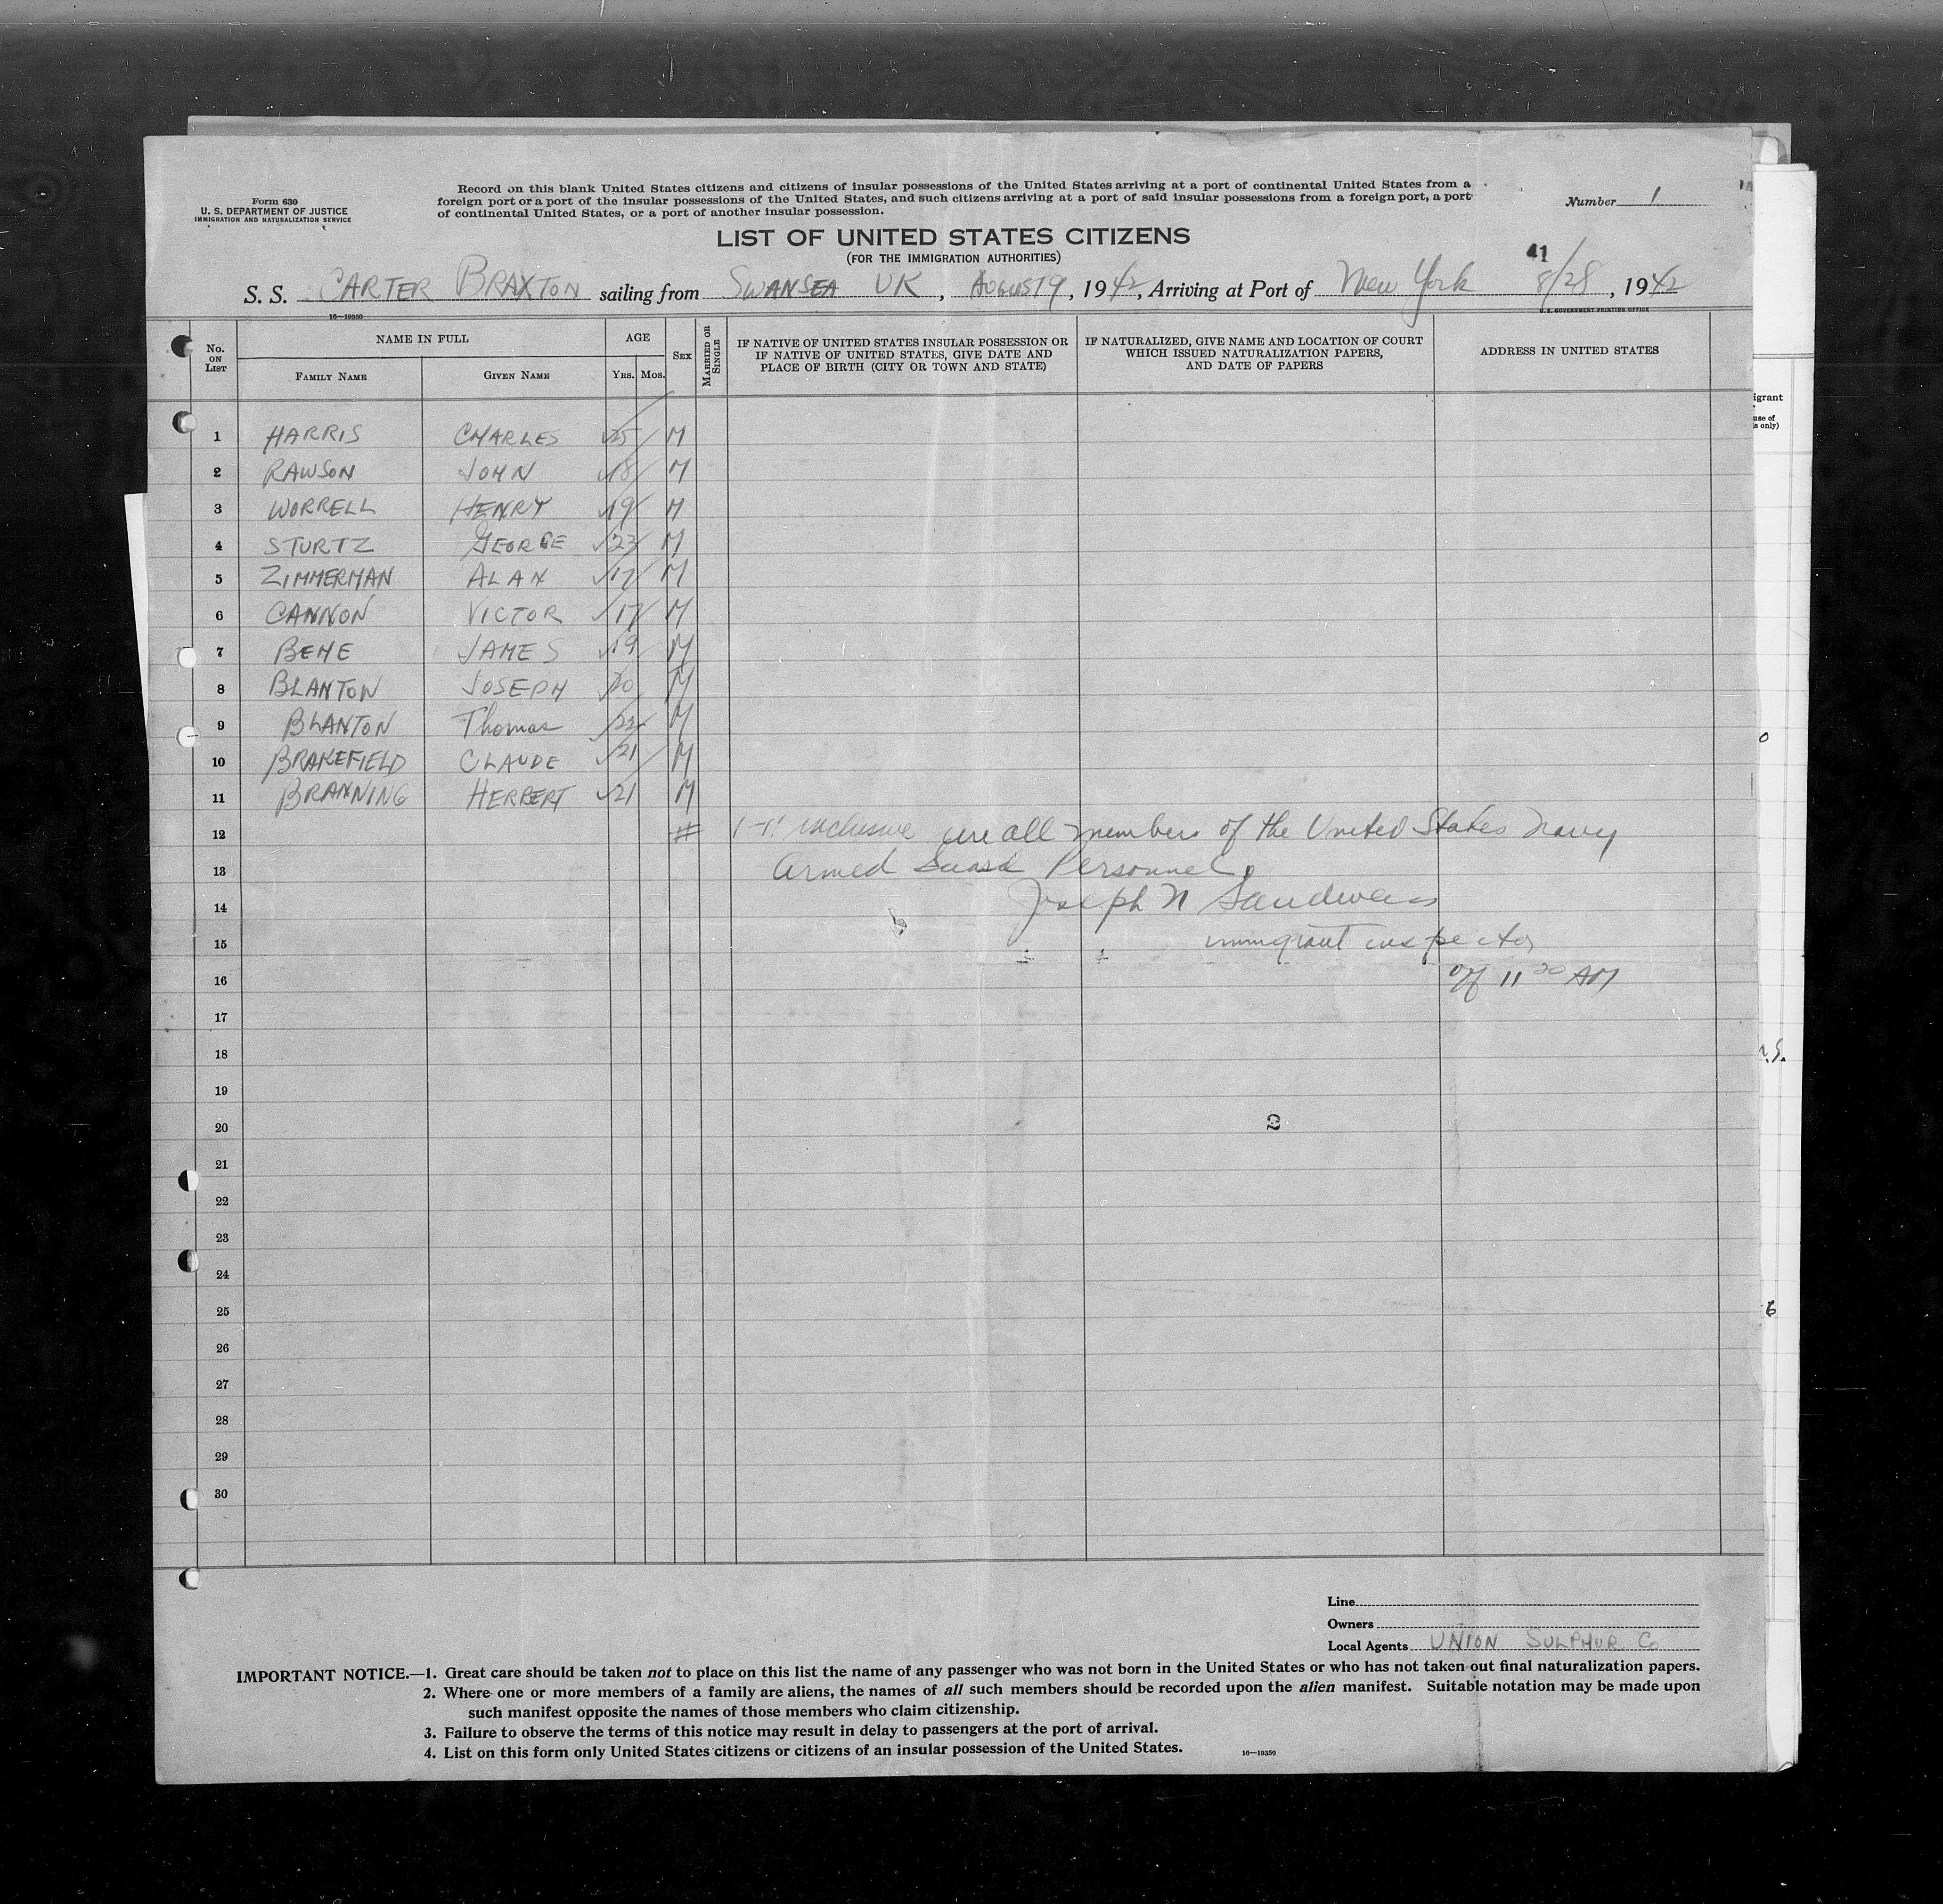 Form 630
U. S. DEPARTMENT OF JUSTICE
IMMIGRATION AND NATURALIZATION SERVICE
Record on this blank United States citizens and citizens of insular possessions of the United States arriving at a port of continental United States from a
foreign port or a port of the insular possessions of the United States, and such citizens arriving at a port of said insular possessions from a foreign port, a port
of continental United States, or a port of another insular possession.
Number 1
LIST OF UNITED STATES CITIZENS
(FOR THE IMMIGRATION AUTHORITIES)
41
S. S. CARTER BRAXTON sailing from SWANSEA UK, AUGUST 9, 1942, Arriving at Port of New York 8/28, 1942
16—19350
U. S. GOVERNMENT PRINTING OFFICE
No. ON LIST
NAME IN FULL
FAMILY NAME
GIVEN NAME
AGE
YRS. MOS.
SEX
MARRIED OR SINGLE
IF NATIVE OF UNITED STATES INSULAR POSSESSION OR
IF NATIVE OF UNITED STATES, GIVE DATE AND
PLACE OF BIRTH (CITY OR TOWN AND STATE)
IF NATURALIZED, GIVE NAME AND LOCATION OF COURT
WHICH ISSUED NATURALIZATION PAPERS,
AND DATE OF PAPERS
ADDRESS IN UNITED STATES
1 HARRIS CHARLES 25 M
2 RAWSON JOHN 18 M
3 WORRELL HENRY 19 M
4 STURTZ GEORGE 23 M
5 ZIMMERMAN ALAN 17 M
6 CANNON VICTOR 17 M
7 BEHE JAMES 19 M
8 BLANTON JOSEPH 20 M
9 BLANTON Thomas 22 M
10 BRAKEFIELD CLAUDE 21 M
11 BRANNING HERBERT 21 M
12 # 1-11 inclusive are all members of the United States Navy
13 Armed Guard Personnel.
14 Joseph N Sandweiss
15 immigrant inspector
16 off 11 20 AM
17
18
19
20
2
21
22
23
24
25
26
27
28
29
30
Line
Owners
Local Agents UNION SULPHUR Co
IMPORTANT NOTICE.—1. Great care should be taken not to place on this list the name of any passenger who was not born in the United States or who has not taken out final naturalization papers.
2. Where one or more members of a family are aliens, the names of all such members should be recorded upon the alien manifest. Suitable notation may be made upon
such manifest opposite the names of those members who claim citizenship.
3. Failure to observe the terms of this notice may result in delay to passengers at the port of arrival.
4. List on this form only United States citizens or citizens of an insular possession of the United States.
16—19350